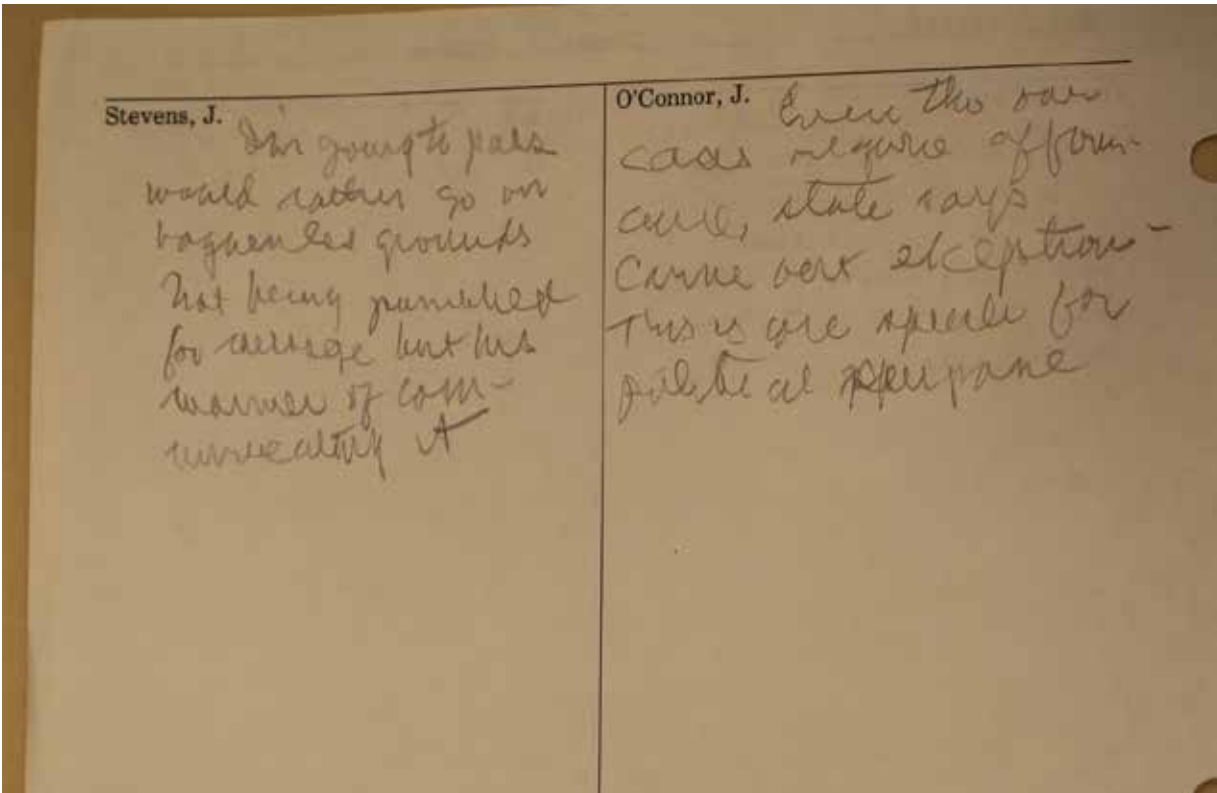 Stevens, J.
I'm going to pass
would rather go on
vagueness grounds
Not being punished
for message but his
manner of com-
municating it
O'Connor, J.
Even tho our
cases require affirm-
ance, state says
Carve out exception -
This is one speech for
political